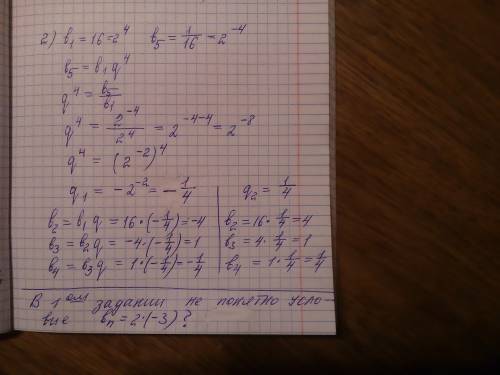 2) b₁ = 16 = 2⁴   b₅ = 1/16 = 2⁻⁴
b₅ = b₁ q⁴
q⁴ = b₅/b₁
q⁴ = 2⁻⁴/2⁴ = 2⁻⁴⁻⁴ = 2⁻⁸
q⁴ = (2⁻²)⁴
q₁ = -2⁻² = -1/4   q₂ = 1/4
b₂ = b₁ q = 16·(-1/4) = -4   b₂ = 16·1/4 = 4
b₃ = b₂ q = -4·(-1/4) = 1   b₃ = 4·1/4 = 1
b₄ = b₃ q = 1·(-1/4) = -1/4   b₄ = 1·1/4 = 1/4
В 1ом задании не понятно усло-
вие bₙ = 2·(-3)?